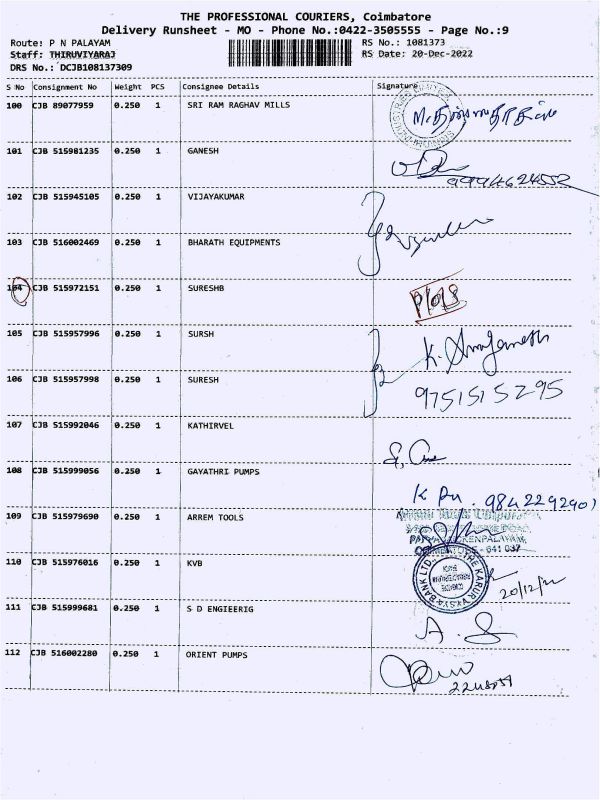 THE PROFESSIONAL COURIERS, Coimbatore
Delivery Runsheet - MO - Phone No.:0422-3505555 - Page No.:9
Route: P N PALAYAM RS No.: 1081373
Staff: THIRUVIYARAJ RS Date: 20-Dec-2022
DRS No.: DCJB108137309
S No Consignment No Weight PCS Consignee Details Signature
100 CJB 89077959 0.250 1 SRI RAM RAGHAV MILLS
101 CJB 515981235 0.250 1 GANESH
9994624552
102 CJB 515945105 0.250 1 VIJAYAKUMAR
103 CJB 516002469 0.250 1 BHARATH EQUIPMENTS
104 CJB 515972151 0.250 1 SURESHB
105 CJB 515957996 0.250 1 SURSH
106 CJB 515957998 0.250 1 SURESH
9751515295
107 CJB 515992046 0.250 1 KATHIRVEL
108 CJB 515999056 0.250 1 GAYATHRI PUMPS
9842292907
109 CJB 515979690 0.250 1 ARREM TOOLS
110 CJB 515976016 0.250 1 KVB
THE KARUR VYSYA BANK LTD.
20/12/22
111 CJB 515999681 0.250 1 S D ENGIEERIG
A. S
112 CJB 516002280 0.250 1 ORIENT PUMPS